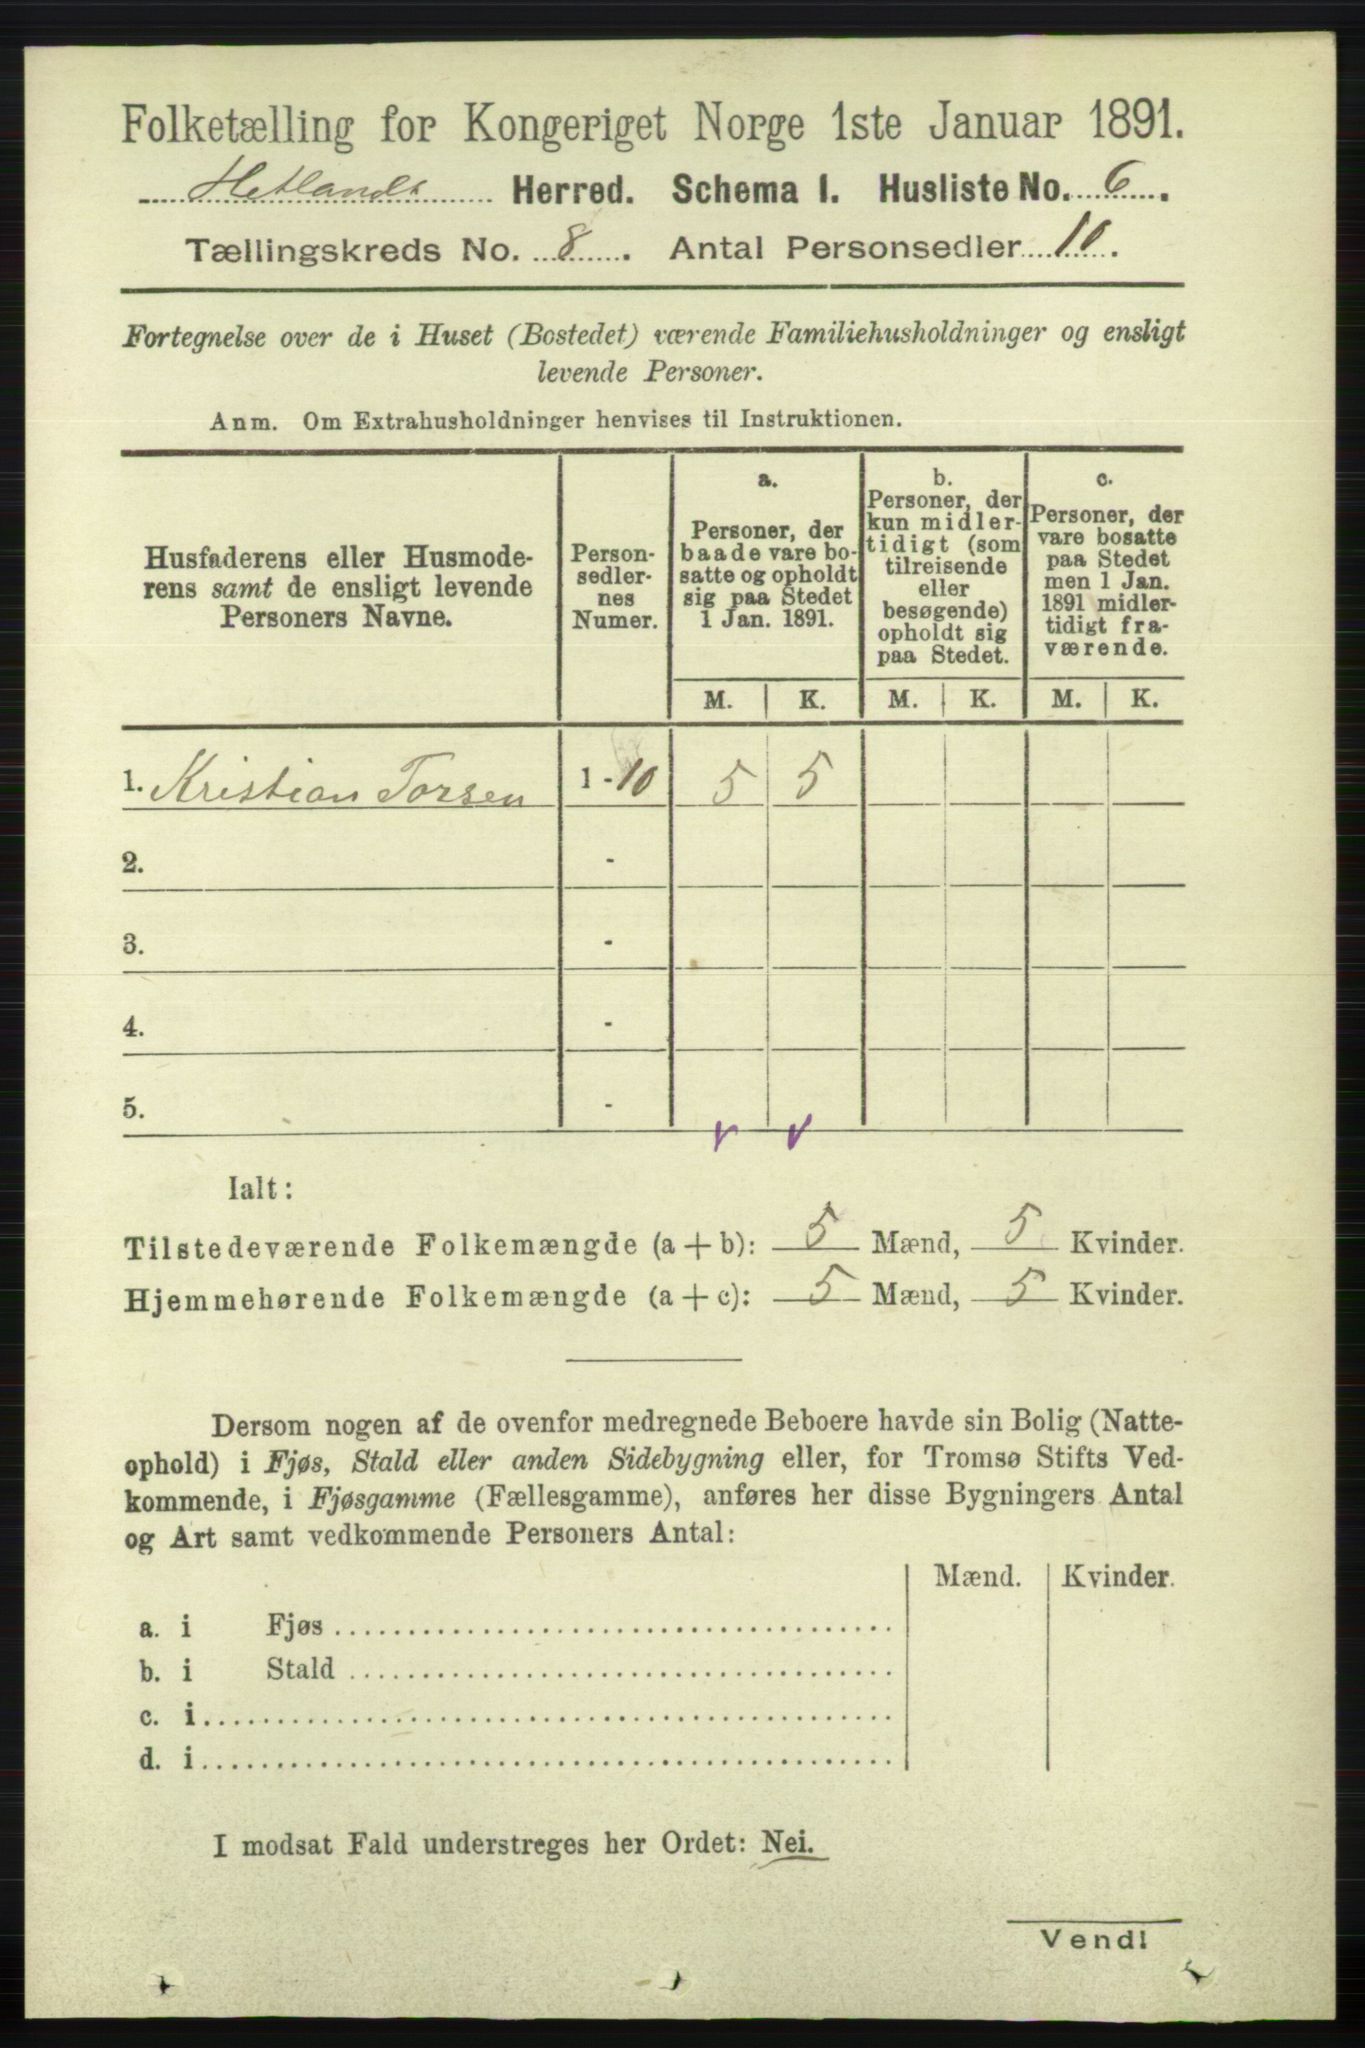 Folketælling for Kongeriget Norge 1ste Januar 1891.
Hetlands Herred. Schema I. Husliste No. 6.
Tællingskreds No. 8. Antal Personsedler 10.
Fortegnelse over de i Huset (Bostedet) værende Familiehusholdninger og ensligt
levende Personer.
Anm. Om Extrahusholdninger henvises til Instruktionen.
Husfaderens eller Husmode-
rens samt de ensligt levende
Personers Navne.
Person-
sedler-
nes
Numer.
a.
Personer, der
baade vare bo-
satte og opholdt
sig paa Stedet
1 Jan. 1891.
b.
Personer, der
kun midler-
tidigt (som
tilreisende
eller
besøgende)
opholdt sig
paa Stedet.
c.
Personer, der
vare bosatte
paa Stedet
men 1 Jan.
1891 midler-
tidigt fra-
værende.
M. K. M. K. M. K.
1. Kristian Torsen 1 - 10 5 5
2. -
3. -
4. -
5. -
Ialt:
Tilstedeværende Folkemængde (a + b): 5 Mænd, 5 Kvinder.
Hjemmehørende Folkemængde (a + c): 5 Mænd, 5 Kvinder.
Dersom nogen af de ovenfor medregnede Beboere havde sin Bolig (Natte-
ophold) i Fjøs, Stald eller anden Sidebygning eller, for Tromsø Stifts Ved-
kommende, i Fjøsgamme (Fællesgamme), anføres her disse Bygningers Antal
og Art samt vedkommende Personers Antal:
Mænd. Kvinder.
a. i Fjøs
b. i Stald
c. i
d. i
I modsat Fald understreges her Ordet: Nei.
Vend!